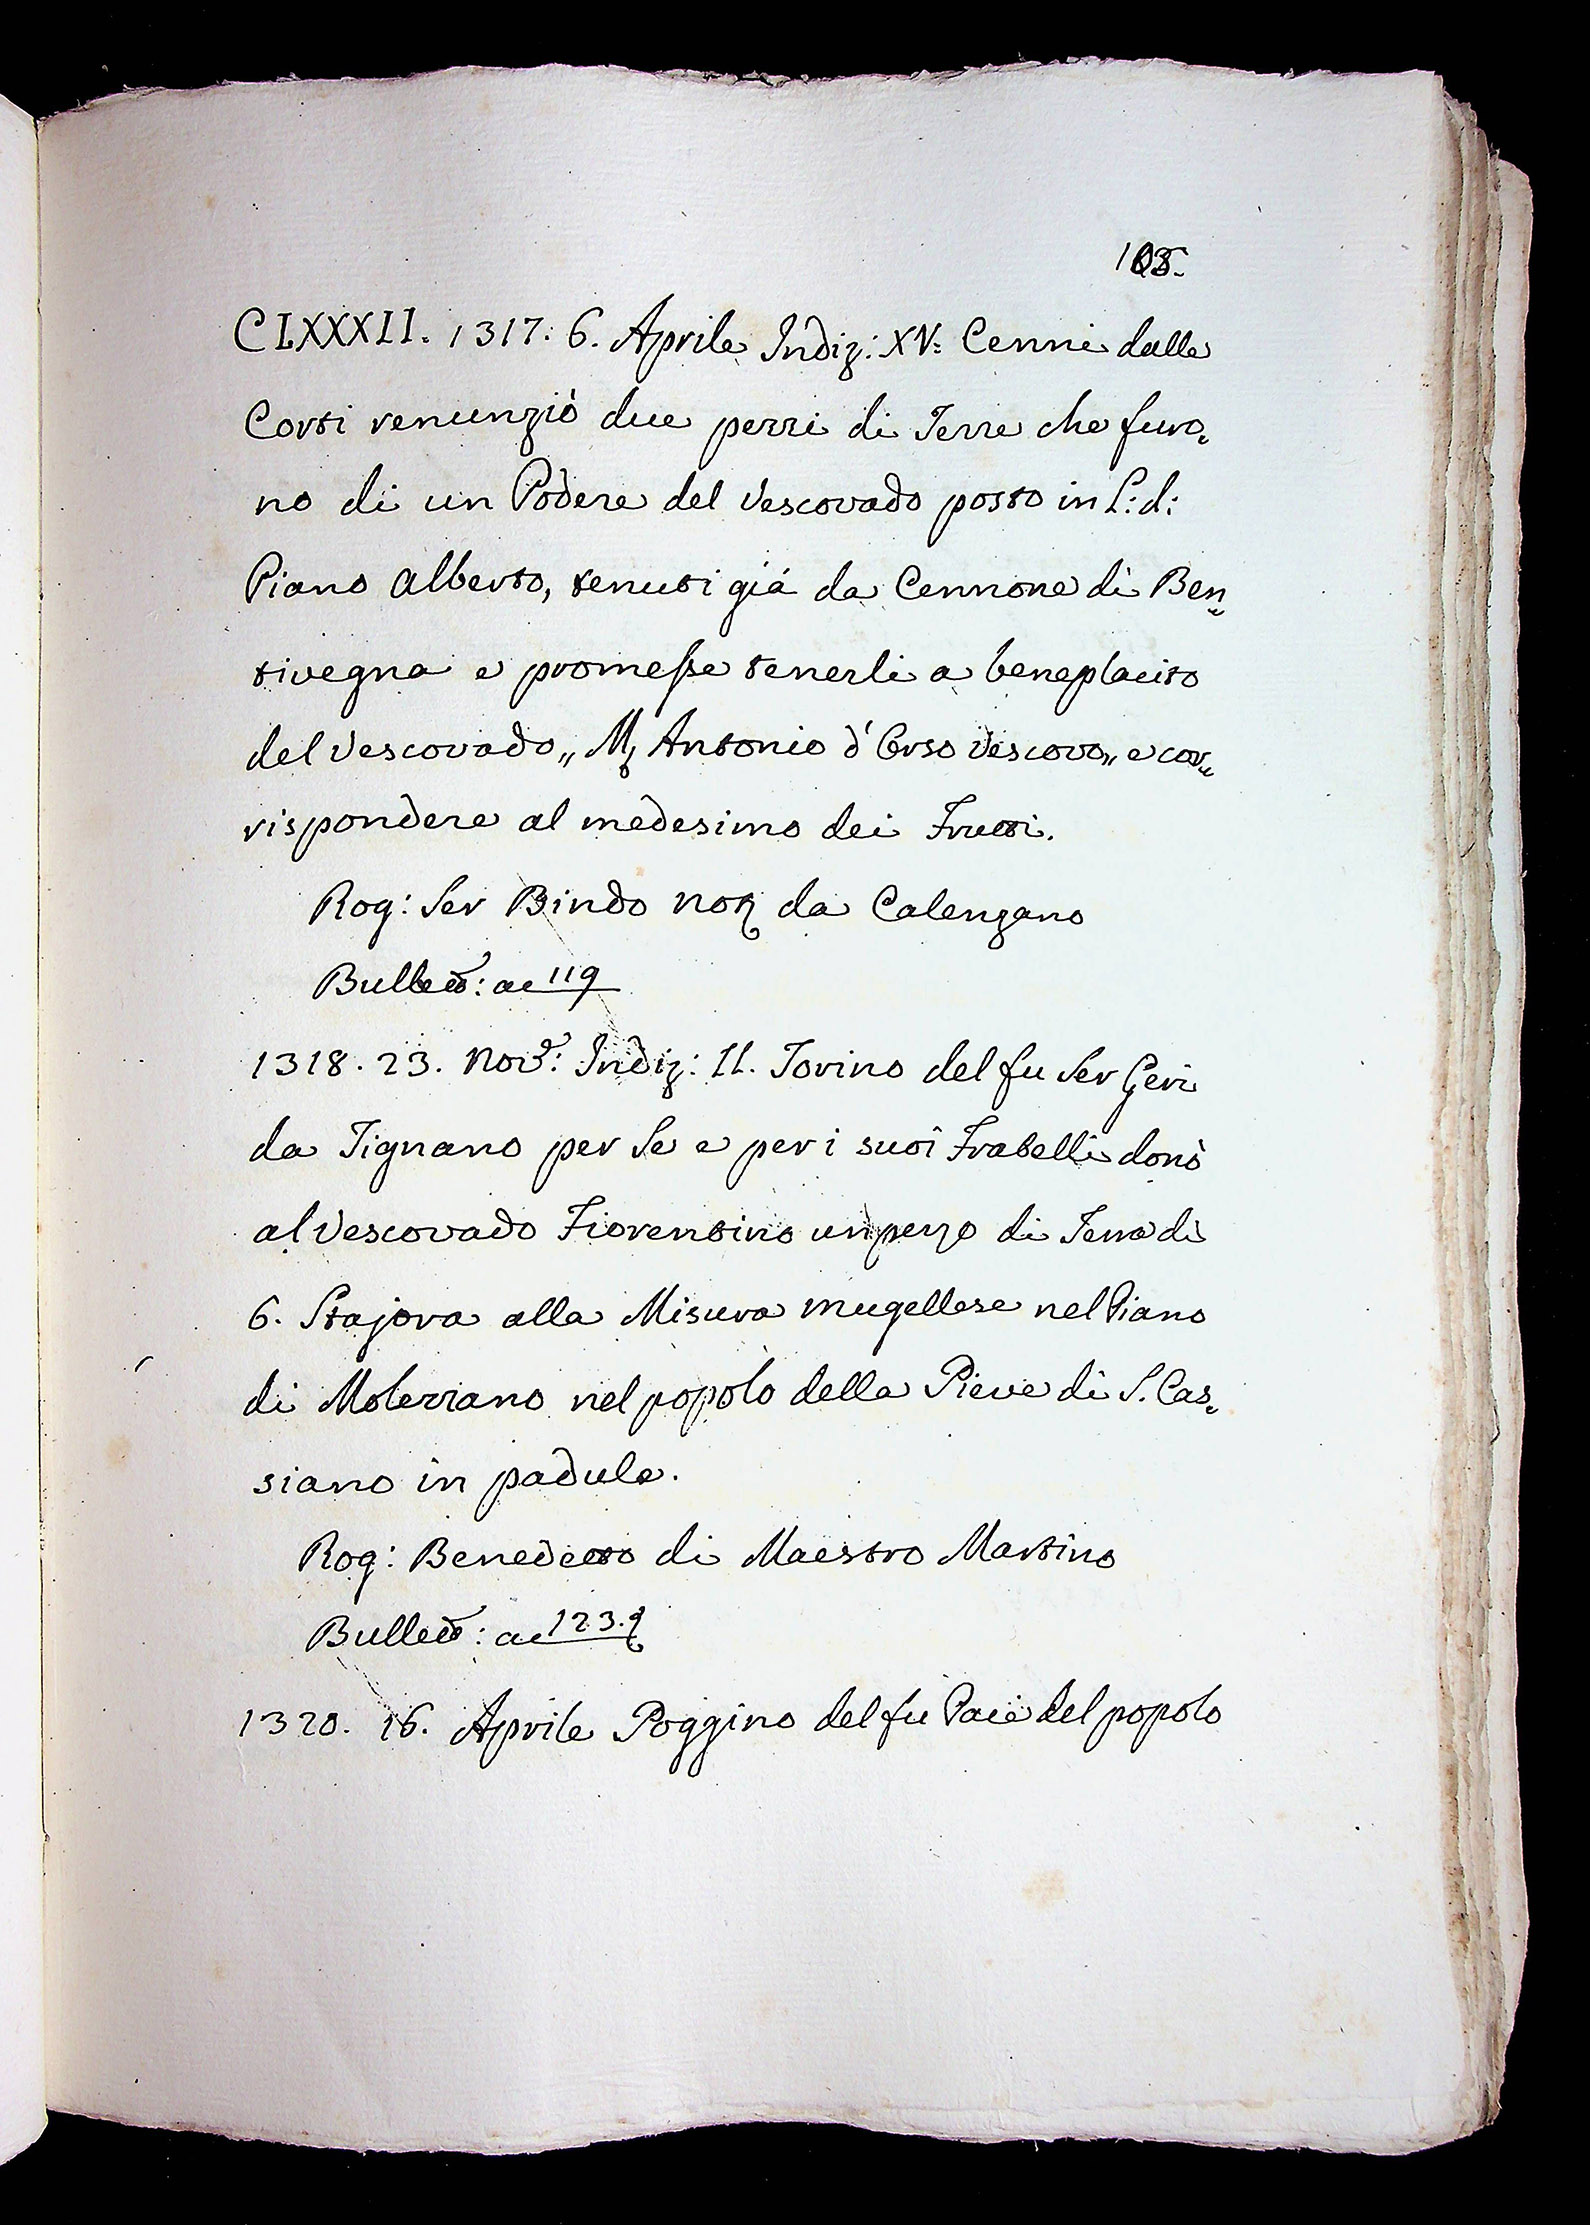 CLXXXII. 1317. 6. Aprile Indiz: XV: Cenni dalle
Corti renunziò due pezzi di Terre che furo=
no di un Podere del Vescovado posto in L: d:
Piano Alberto, tenuti già da Cennone di Ben=
tivegna e promesse tenerli a beneplacito
del Vescovado,, M Antonio d'Orso Vescovo,, e cor=
rispondere al medesimo dei Frutti.
Rog: Ser Bindo Not da Calenzano
Bullett: ac 119
1318. 23. Nov: Indiz: II. Torino del fu Ser Geri
da Tignano per Se e per i suoi Fratelli donò
al Vescovado Fiorentino un pezzo di Terra di
6. Stajora alla Misura mugellese nel Piano
di Molezzano nel popolo della Pieve di S. Cas=
siano in padule.
Rog: Benedetto di Maestro Martino
Bullett: ac 123.
1320. 16. Aprile Poggino del fu Pace del popolo